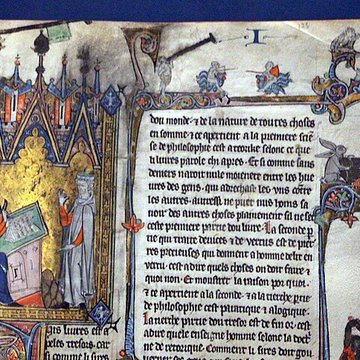 I
dou monde · & de la nature de toutes choses
en somme · & ce apertient a la premiere scien
se de philosophie cest a teorike selonc ce que
li liures parole chi apres · Et si comme sans
deniers nauoit nule moienete entre les
ures des gens · qui adrechast les uns contre
les autres · autresi ne puet nus hons sa
uoir des autres choses plainement sil ne set
ceste premiere partie dou liure · La seconde p
tie qui traite de uices & de uertus est de pie
res precieuses qui donnent a home delit et
uertu · cest a dire quels choses on doit faire &
quoi non · Et monstre la raison por quoi ·
& ce apertient a la seconde · & a la tierche prie
de philosophie cest pratique & a logique
La tierche partie dou tresor est de fin or · cest
a dire quele ensegne homme selonc la doctri
ne de retorique · Comment li sires doit gou
uerner ses gens
is liures est a
peles tresors · car
si comme li sires